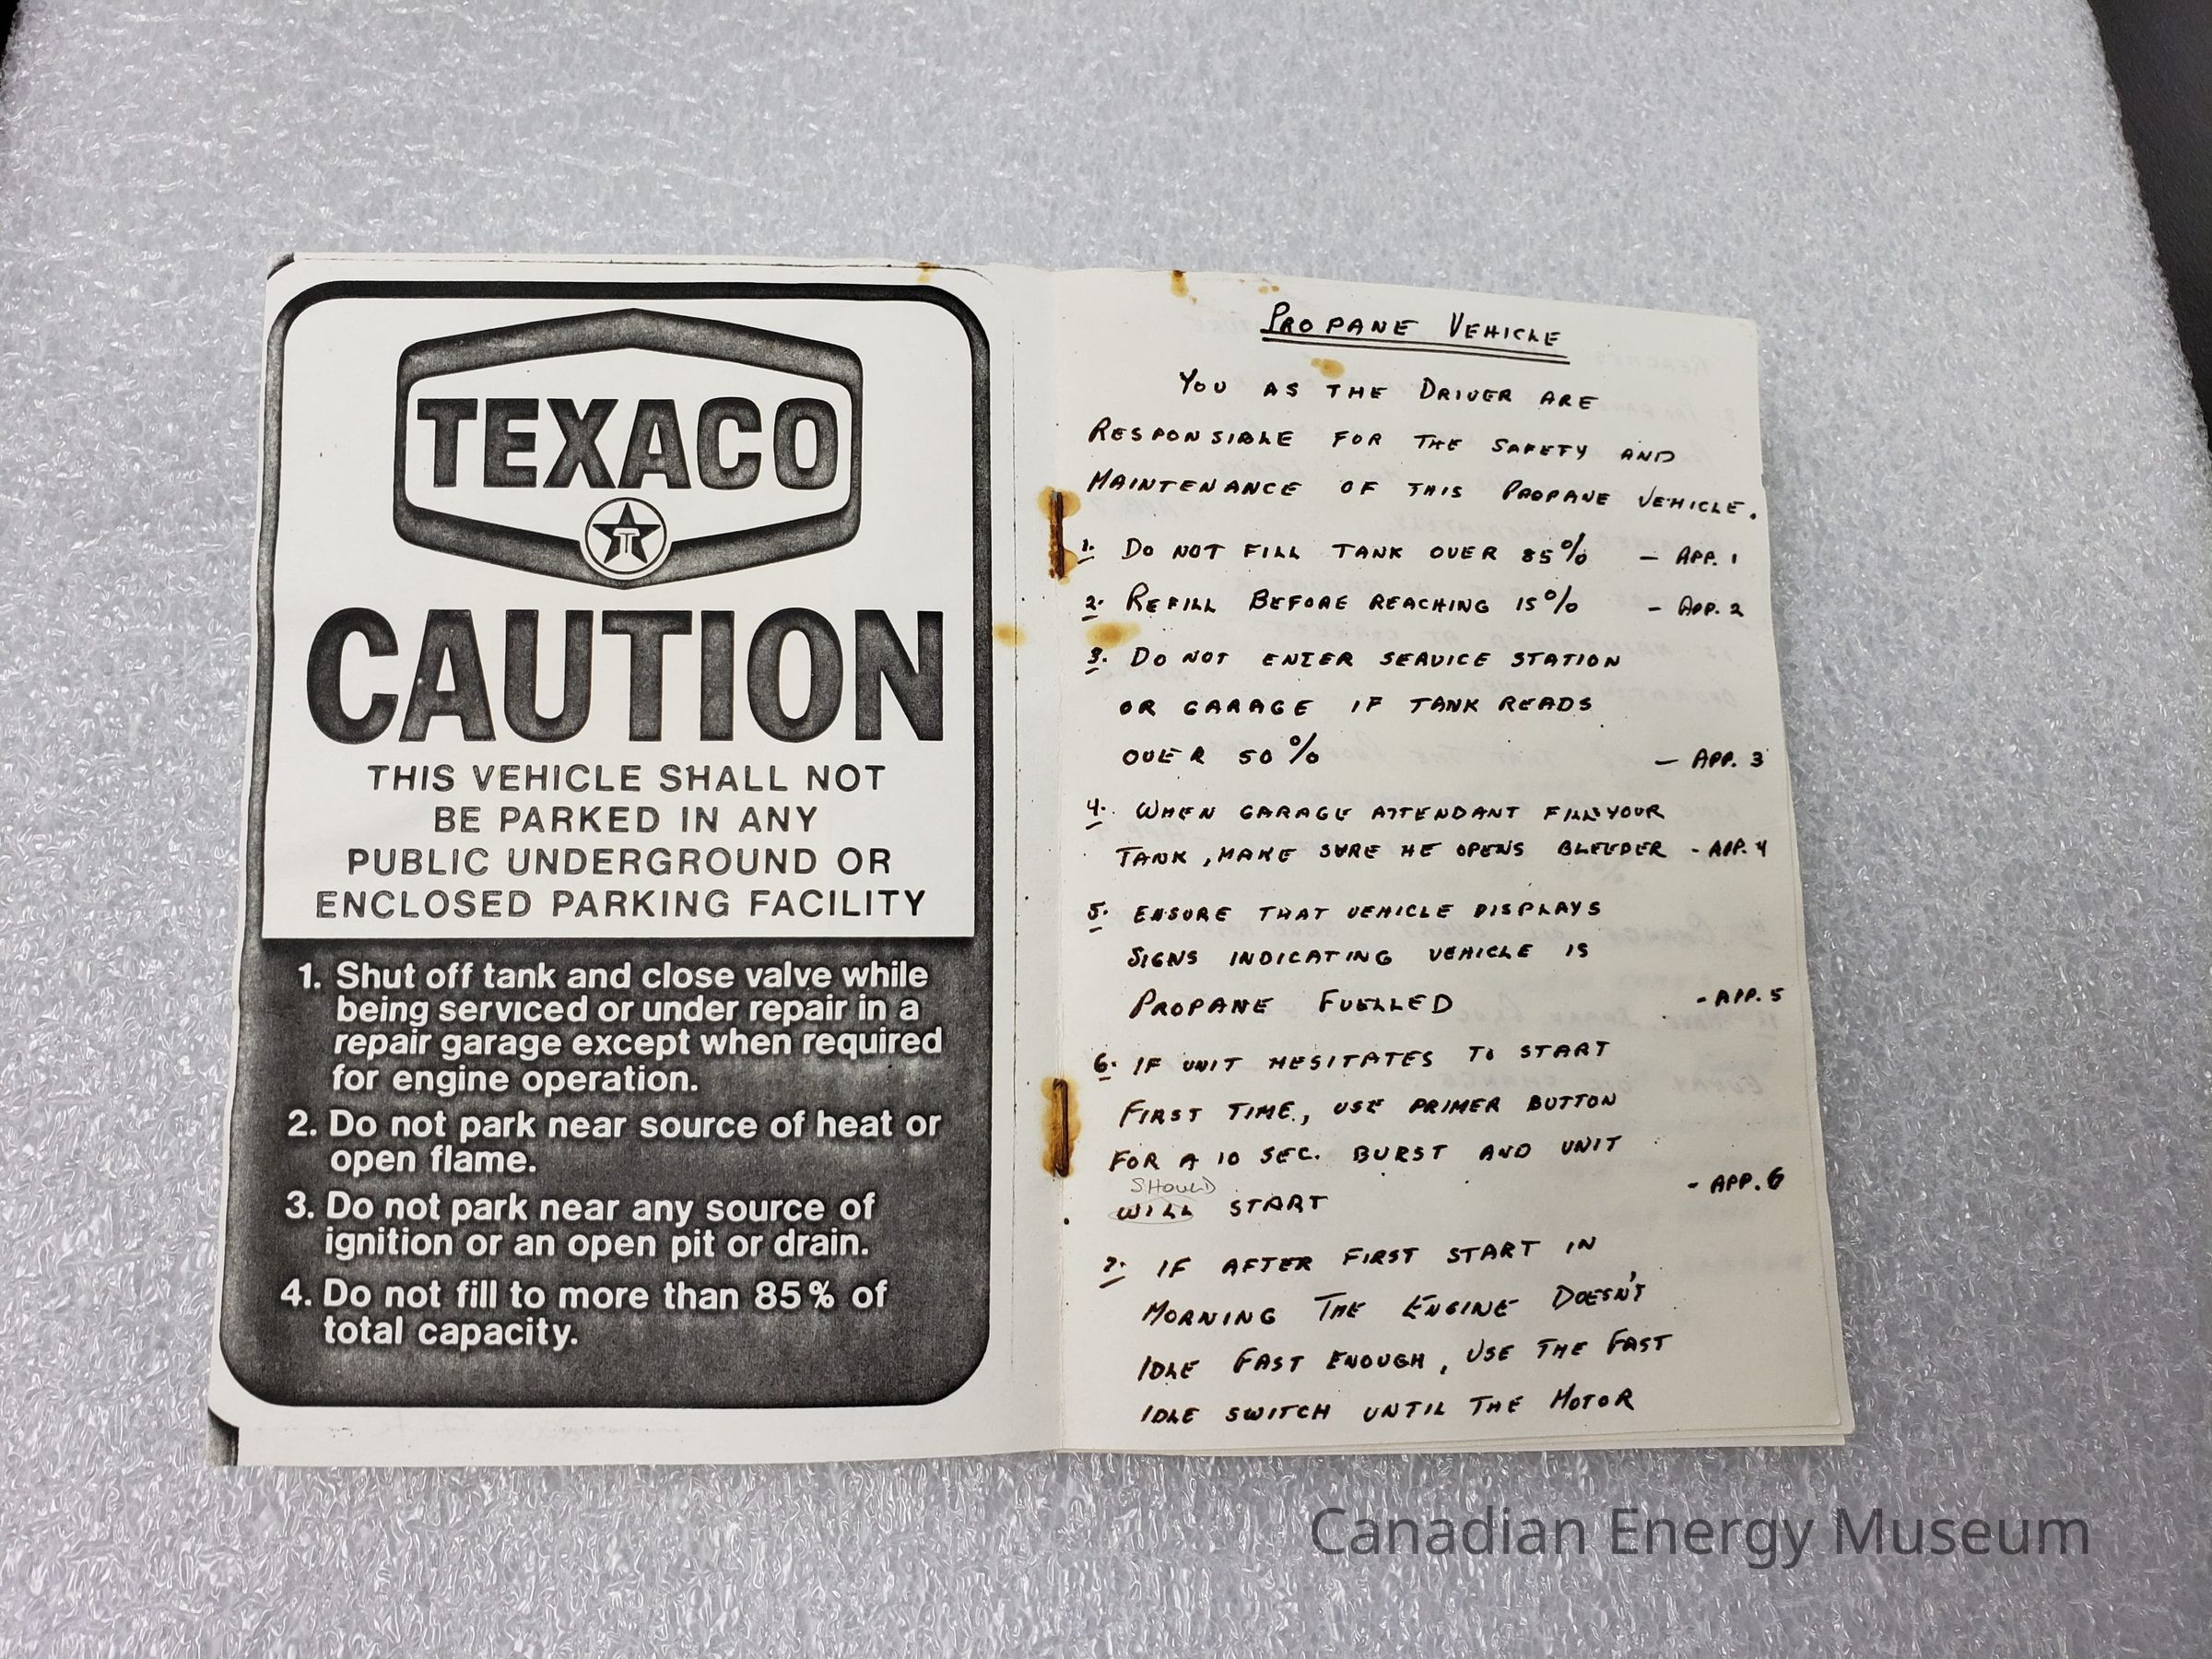 TEXACO
T
CAUTION
THIS VEHICLE SHALL NOT
BE PARKED IN ANY
PUBLIC UNDERGROUND OR
ENCLOSED PARKING FACILITY
1. Shut off tank and close valve while
being serviced or under repair in a
repair garage except when required
for engine operation.
2. Do not park near source of heat or
open flame.
3. Do not park near any source of
ignition or an open pit or drain.
4. Do not fill to more than 85% of
total capacity.
PROPANE VEHICLE
YOU AS THE DRIVER ARE
RESPONSIBLE FOR THE SAFETY AND
MAINTENANCE OF THIS PROPANE VEHICLE.
1. DO NOT FILL TANK OVER 85% - APP. 1
2. REFILL BEFORE REACHING 15% - APP. 2
3. DO NOT ENTER SERVICE STATION
OR GARAGE IF TANK READS
OVER 50% - APP. 3
4. WHEN GARAGE ATTENDANT FILLS YOUR
TANK, MAKE SURE HE OPENS BLEEDER - APP. 4
5. ENSURE THAT VEHICLE DISPLAYS
SIGNS INDICATING VEHICLE IS
PROPANE FUELLED - APP. 5
6. IF UNIT HESITATES TO START
FIRST TIME, USE PRIMER BUTTON
FOR A 10 SEC. BURST AND UNIT
SHOULD
WILL START - APP. 6
7. IF AFTER FIRST START IN
MORNING THE ENGINE DOESN'T
IDLE FAST ENOUGH, USE THE FAST
IDLE SWITCH UNTIL THE MOTOR
Canadian Energy Museum